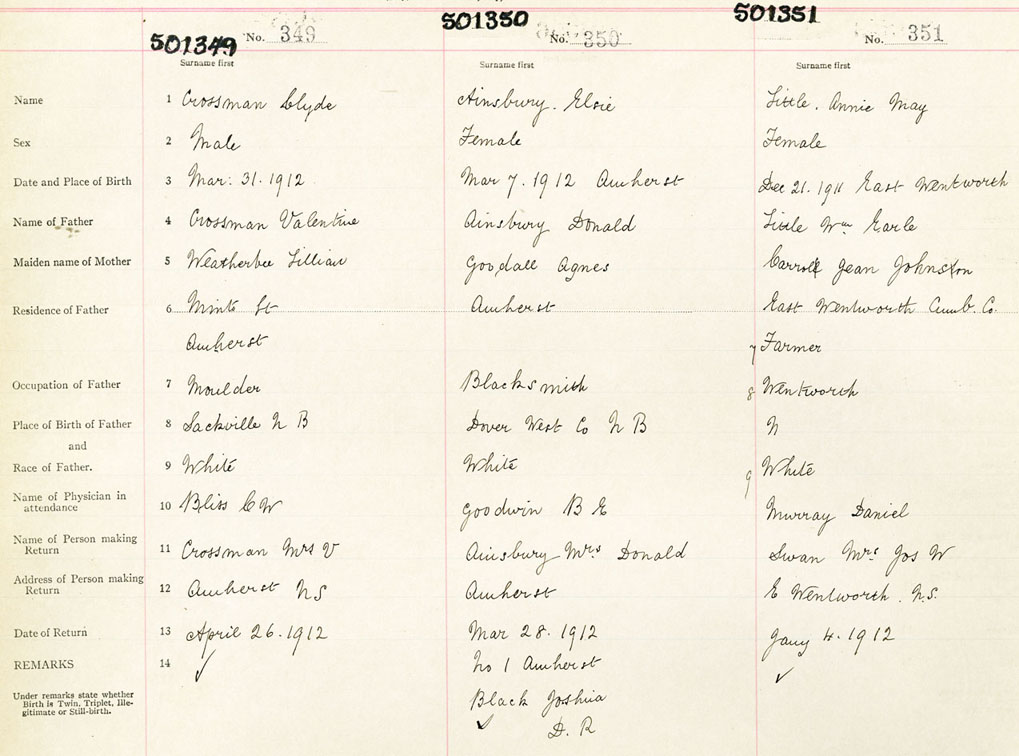 501349 No. 349 501350 No. 350 501351 No. 351
Surname first Surname first Surname first
Name 1 Crossman Clyde Ainsbury. Elsie Little. Annie May
Sex 2 Male Female Female
Date and Place of Birth 3 Mar: 31. 1912 Mar 7. 1912 Amherst Dec 21. 1911 East Wentworth
Name of Father 4 Crossman Valentine Ainsbury Donald Little Wm Earle
Maiden name of Mother 5 Weatherbee Lillian Goodall Agnes Carroll Jean Johnston
Residence of Father 6 Minto St Amherst East Wentworth Cumb. Co.
Amherst 7 Farmer
Occupation of Father 7 Moulder Blacksmith 8 Wentworth
Place of Birth of Father 8 Sackville N B Dover West Co N B N
and
Race of Father. 9 White White 9 White
Name of Physician in
attendance 10 Bliss C W Goodwin B E Murray Daniel
Name of Person making
Return 11 Crossman Mrs V Ainsbury Mrs Donald Swan Mrs Jos W
Address of Person making
Return 12 Amherst NS Amherst E Wentworth. N.S.
Date of Return 13 April 26. 1912 Mar 28. 1912 Jany 4. 1912
REMARKS 14 ✓ No 1 Amherst ✓
Under remarks state whether
Birth is Twin, Triplet, Ille-
gitimate or Still-birth.
Black Joshua
✓ D. R